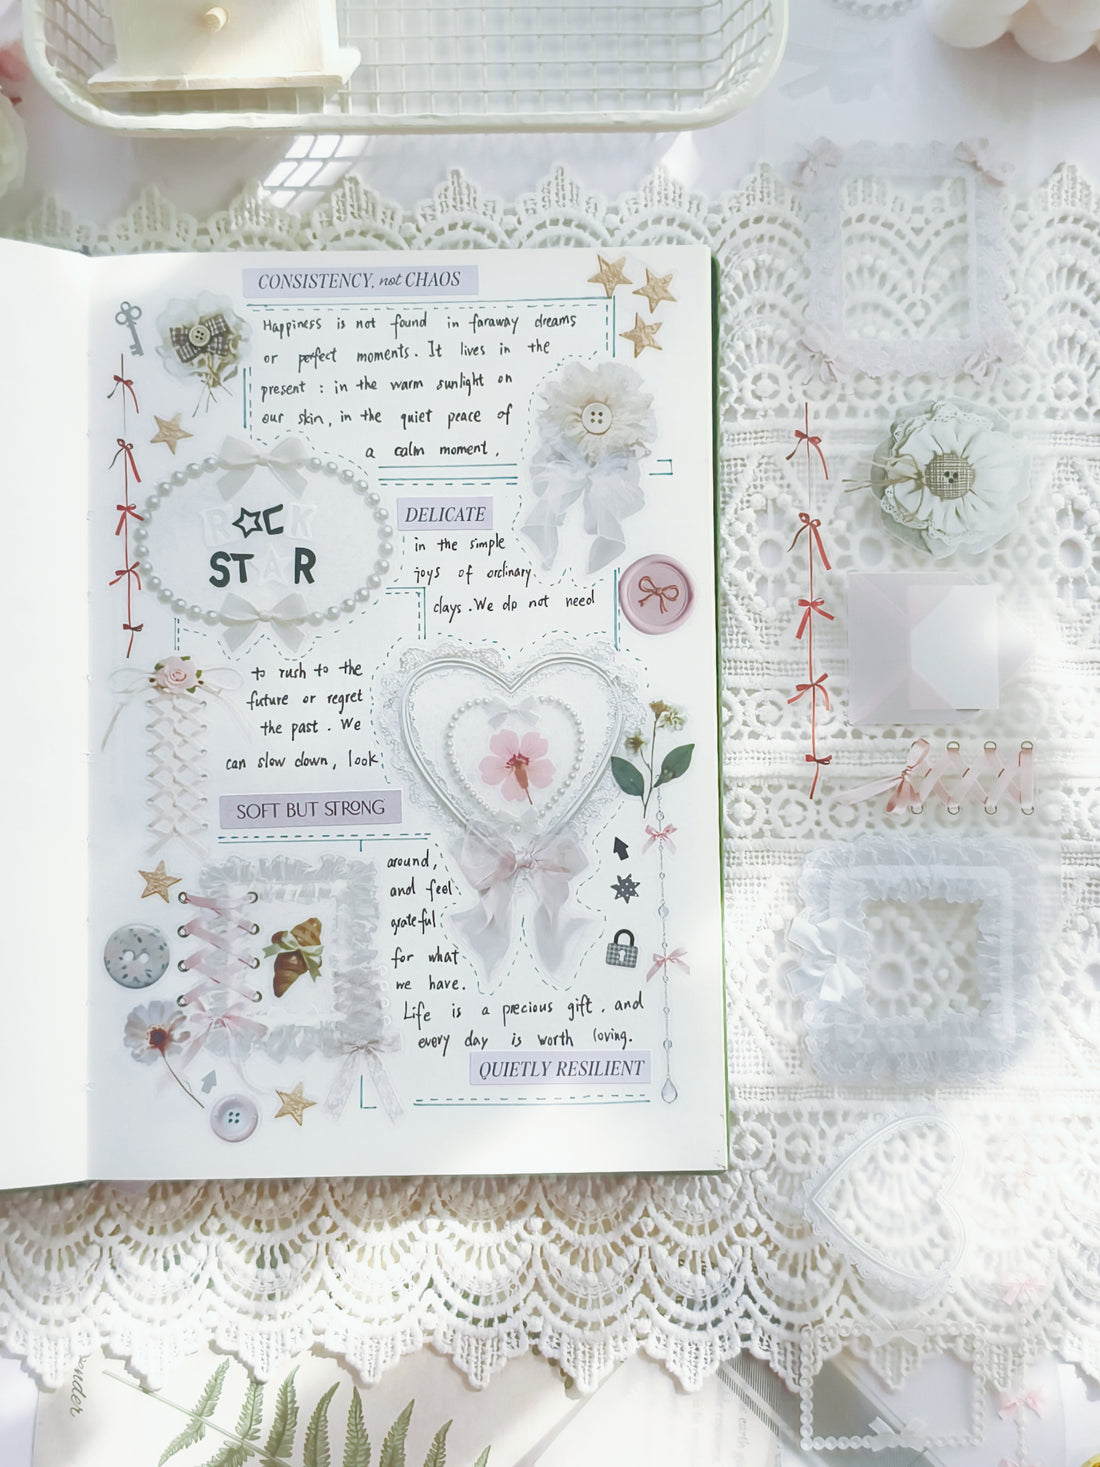 CONSISTENCY, not CHAOS
Happiness is not found in faraway dreams
or perfect moments. It lives in the
present : in the warm sunlight on
our skin, in the quiet peace of
a calm moment,
ROCK
STAR
DELICATE
in the simple
joys of ordinary
days. We do not need
to rush to the
future or regret
the past. We
can slow down, look
SOFT BUT STRONG
around,
and feel
grateful
for what
we have.
Life is a precious gift, and
every day is worth loving.
QUIETLY RESILIENT